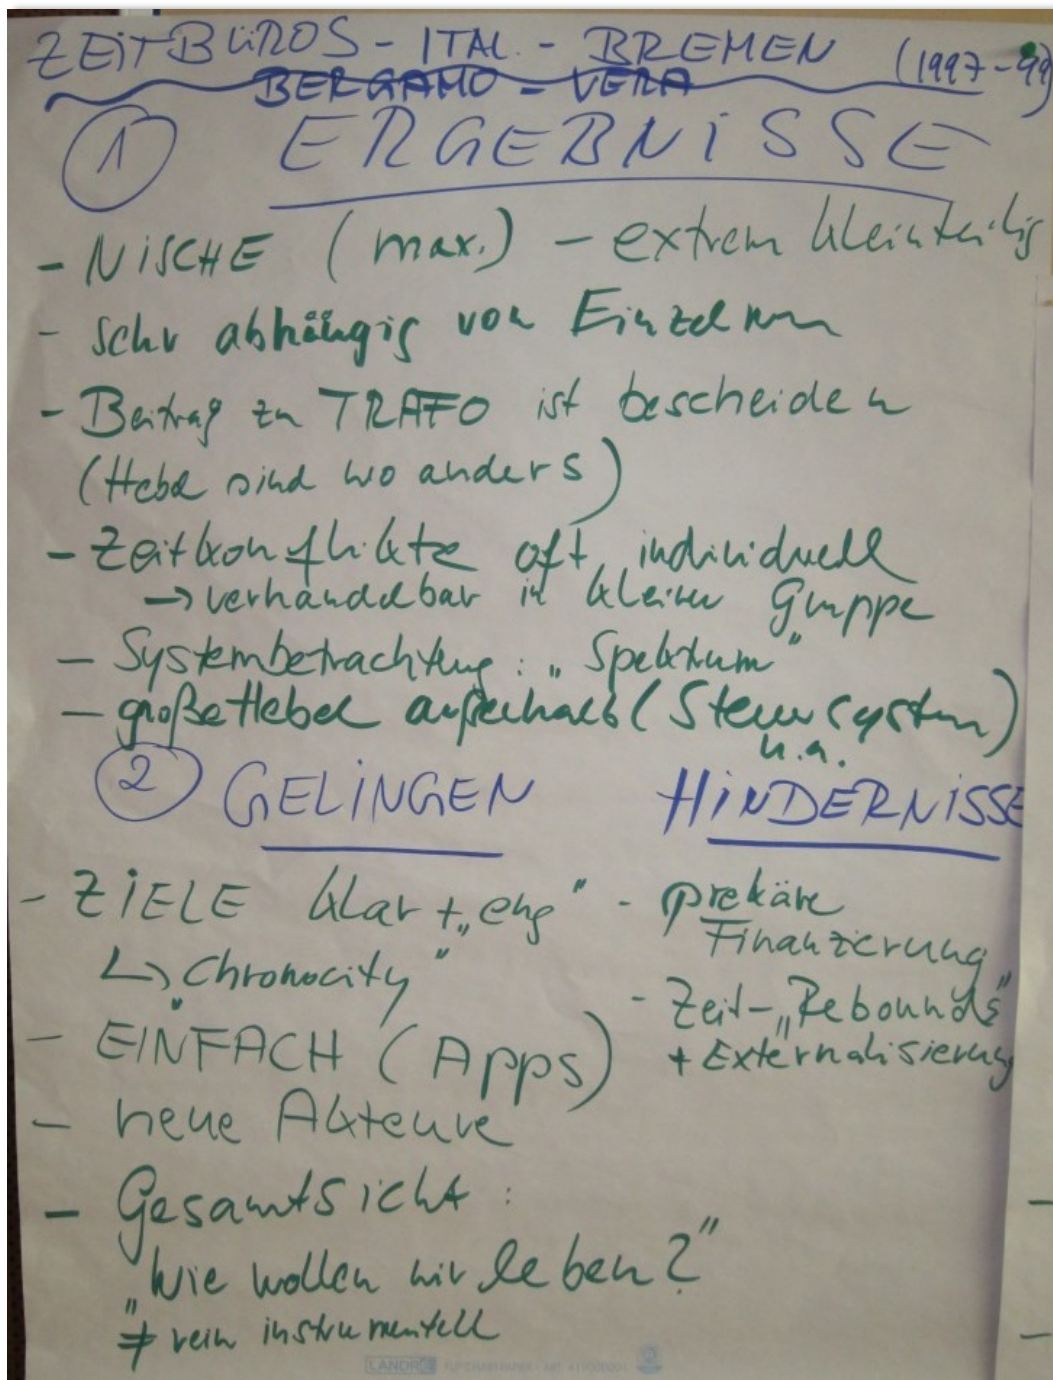 ZEITBÜROS - ITAL. - BREMEN (1997-99)
BERGAMO - VERA
1 ERGEBNISSE
- NISCHE (max.) - extrem kleinteilig
- sehr abhängig von Einzelnen
- Beitrag zu TRAFO ist bescheiden
(Hebel sind wo anders)
- Zeitkonflikte oft individuell
→ verhandelbar in kleiner Gruppe
- Systembetrachtung: „Spektrum"
- große Hebel außerhalb (Steuersystem)
u.a.
2 GELINGEN
- ZIELE klar + „eng"
↳ „Chronocity"
- EINFACH (Apps)
- neue Akteure
- Gesamtsicht:
„Wie wollen wir leben?"
≠ rein instrumentell
HINDERNISSE
- prekäre
Finanzierung
- Zeit-„Rebounds"
+ Externalisierung
LANDRÉ